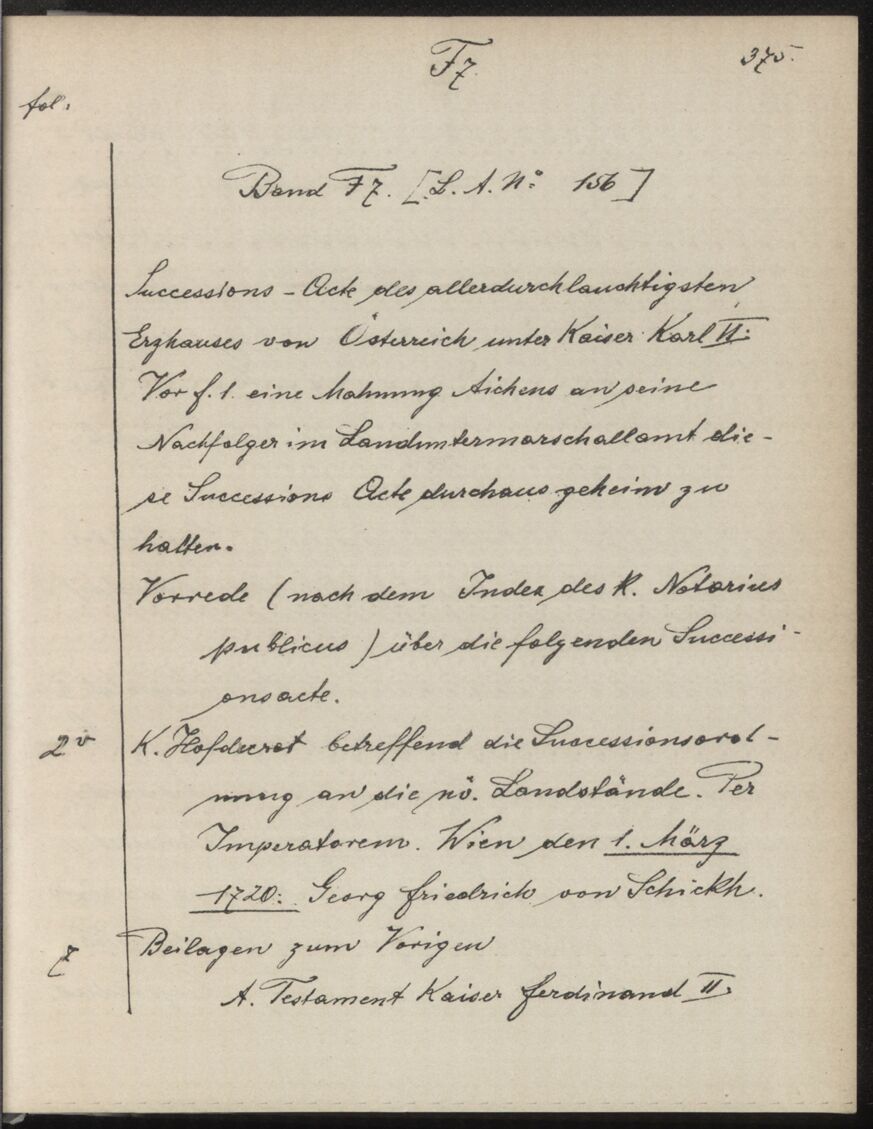 F7.
375.
fol.
Band F7. [L. A. No 156]
Successions-Acte des allerdurchlauchtigsten
Erzhauses von Österreich unter Kaiser Karl VI.
Vor f. 1. eine Mahnung Aichens an seine
Nachfolger im Landuntermarschallamt die-
se Successions Acte durchaus geheim zu
halten.
Vorrede (nach dem Index des K. Notarius
publicus) über die folgenden Successi-
onsacte.
2v K. Hofdecret betreffend die Successionsord-
nung an die nö. Landstände. Per
Imperatorem. Wien den 1. März
1720: Georg Friedrich von Schickh.
7 Beilagen zum Vorigen
A. Testament Kaiser Ferdinand II.